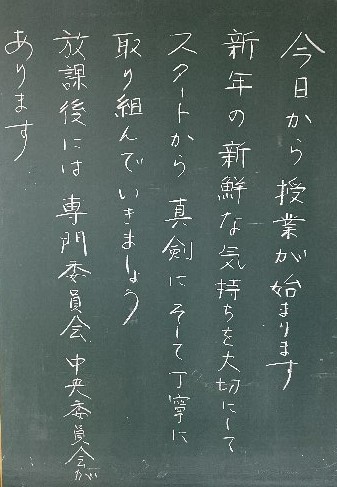 今日から 授業が始まります
新年の新鮮な気持ちを大切にして
スタートから 真剣に そして丁寧に
取り組んでいきましょう
放課後には 専門委員会、中央委員会が
あります